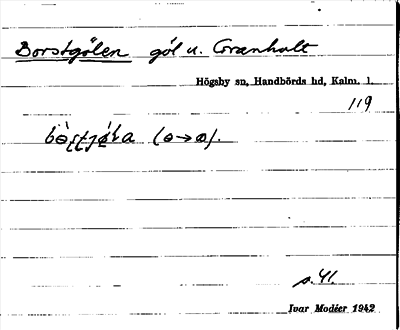 Borstgölen göl u. Granhult
Högsby sn, Handbörds hd, Kalm. l.
119
(ɵ→ɷ).
s. 41.
Ivar Modéer 1942